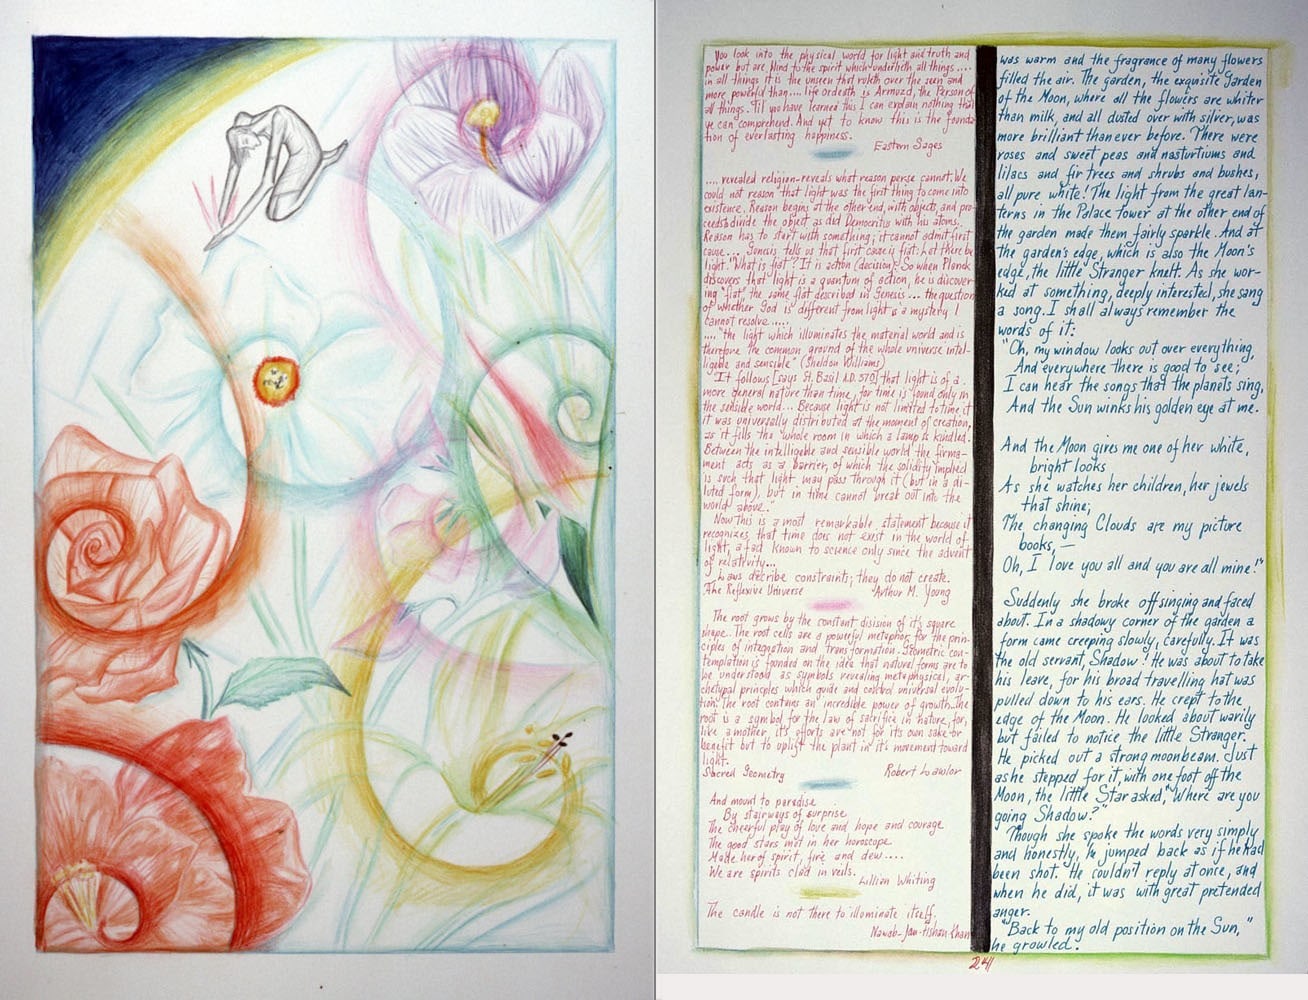 You look into the physical world for light and truth and
power but are blind to the spirit which underlieth all things....
in all things it is the unseen that ruleth over the seen and
more powerful than.... life or death is Armuzd, the Person of
all things. Til you have learned this I can explain nothing that
ye can comprehend. And yet to know this is the founda-
tion of everlasting happiness.
Eastern Sages
.... revealed religion-reveals what reason perse cannot. We
could not reason that light was the first thing to come into
existence. Reason begins at the other end, with objects, and pro-
ceeds to divide the object as did Democritis with his atoms.
Reason has to start with something; it cannot admit first
cause... Genesis tells us that first cause is fiat: Let there be
light. "What is fiat"? It is action (decision). So when Plank
discovers that light is a quantum of action, he is discover-
ing "fiat", the same fiat described in Genesis... the question
of whether God is different from light is a mystery I
cannot resolve.....
.... "the light which illuminates the material world and is
therefore the common ground of the whole universe intel-
ligible and sensible" (Sheldon Williams)
"It follows [says St. Basil A.D. 570] that light is of a
more general nature than time, for time is found only in
the sensible world... Because light is not limited to time it
it was universally distributed at the moment of creation,
as it fills the whole room in which a lamp is kindled.
Between the intelligable and sensible world the firma-
ment acts as a barrier, of which the solidity implied
is such that light may pass through it (but in a di-
luted form), but in time cannot break out into the
world above."
Now this is a most remarkable statement because it
recognizes that time does not exist in the world of
light, a fact known to science only since the advent
of relativity...
Laws decribe constraints; they do not create.
The Reflexive Universe Arthur M. Young
The root grows by the constant division of it's square
shape. The root cells are a powerful metaphor for the prin-
ciples of integration and transformation. Geometric con-
templation is founded on the idea that natural forms are to
be understood as symbols revealing metaphysical, ar-
chetypal principles which guide and control universal evolu-
tion. The root contains an incredible power of growth. The
root is a symbol for the law of sacrifice in nature, for,
like a mother, it's efforts are not for its own sake or
benefit but to uplift the plant in it's movement toward
light.
Sacred Geometry Robert Lawlor
And mount to paradise
By stairways of surprise
The cheerful play of love and hope and courage
The good stars met in her horoscope
Made her of spirit, fire and dew....
We are spirits clad in veils.
Lillian Whiting
The candle is not there to illuminate itself.
Nawab-Jan-Fishan Khan
was warm and the fragrance of many flowers
filled the air. The garden, the exquisite Garden
of the Moon, where all the flowers are whiter
than milk, and all dusted over with silver, was
more brilliant than ever before. There were
roses and sweet peas and nasturtiums and
lilacs and fir trees and shrubs and bushes,
all pure white! The light from the great lan-
terns in the Palace Tower at the other end of
the garden made them fairly sparkle. And at
the garden's edge, which is also the Moon's
edge, the little Stranger knelt. As she wor-
ked at something, deeply interested, she sang
a song. I shall always remember the
words of it:
"Oh, my window looks out over everything,
And everywhere there is good to see;
I can hear the songs that the planets sing,
And the Sun winks his golden eye at me.
And the Moon gives me one of her white,
bright looks
As she watches her children, her jewels
that shine;
The changing Clouds are my picture
books,—
Oh, I love you all and you are all mine!"
Suddenly she broke off singing and faced
about. In a shadowy corner of the garden a
form came creeping slowly, carefully. It was
the old servant, Shadow! He was about to take
his leave, for his broad travelling hat was
pulled down to his ears. He crept to the
edge of the Moon. He looked about warily
but failed to notice the little Stranger.
He picked out a strong moonbeam. Just
as he stepped for it, with one foot off the
Moon, the little Star asked, "Where are you
going Shadow?"
Though she spoke the words very simply
and honestly, he jumped back as if he had
been shot. He couldn't reply at once, and
when he did, it was with great pretended
anger.
"Back to my old position on the Sun,"
he growled.
241